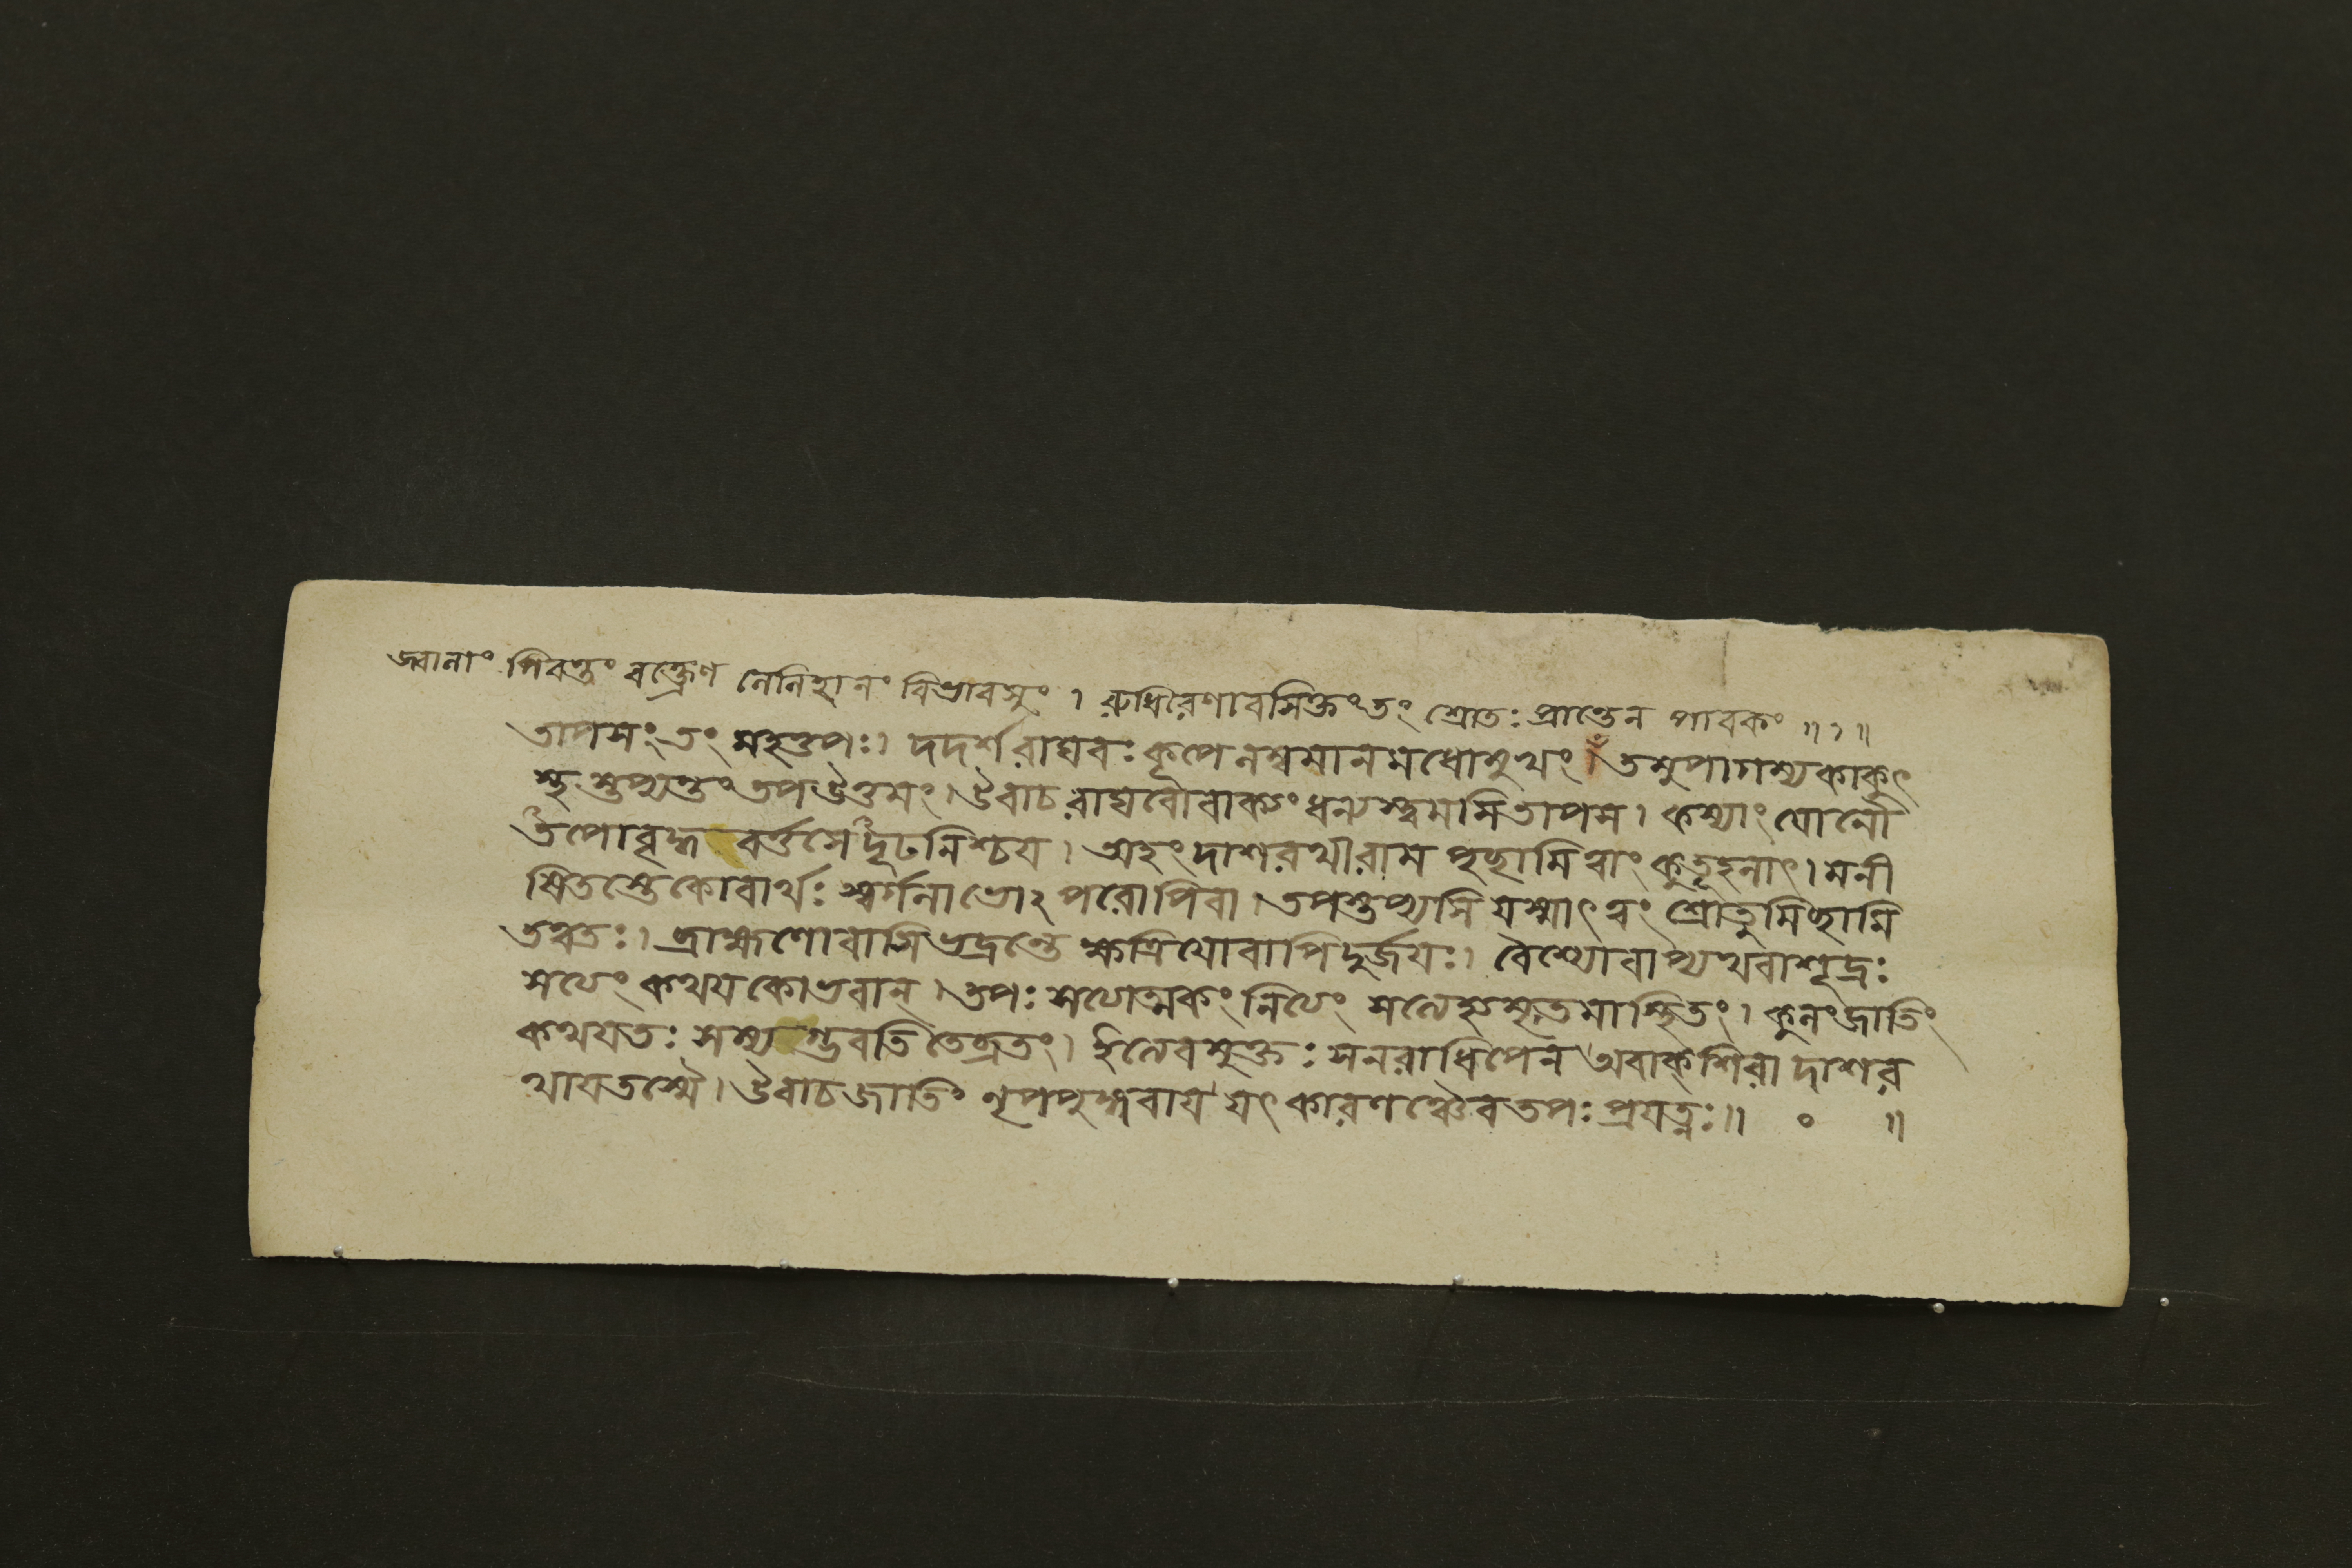 জ্বালাং পিবন্তং বক্ত্রেণ লেলিহানং বিভাবসুং । রুধিরেণাবসিক্তং তং শ্রোতঃ প্রান্তেন পাবকং ॥ ১ ॥
তাপসং তং মহত্তপঃ। দদর্শ রাঘবঃ কূপে লম্বমানমধোমুখং । তমুপাগম্য কাকুৎ
স্থ স্তপ্যন্তং তপ উত্তমং। উবাচ রাঘবো বাক্যং ধন্যস্ত্বমসি তাপস। কস্যাং যোনৌ
তপোবৃদ্ধ বর্ত্তসে দৃঢনিশ্চয। অহং দাশরথী রাম পৃচ্ছামি ত্বাং কুতূহলাৎ। মনী
ষিতস্তে কো বার্থঃ স্বর্গলাভোঽপরোপি বা। তপস্তপ্যসি যস্মাৎ ত্বং শ্রোতুমিচ্ছামি
তত্ত্বতঃ। ব্রাহ্মণো বাসি ভদ্রন্তে ক্ষত্রিযো বাপি দুর্জযঃ। বৈশ্যো বাপ্যথবা শূদ্রঃ
সত্যং কথয কো ভবান্। তপঃ সত্যাত্মকং নিত্যং সত্যেহ্যমৃতমাস্থিতং। কুলং জাতিং
কথযতঃ সম্যগ্ভবতি তে ব্রতং। ইত্যেবমুক্তঃ স নরাধিপেন অবাক্শিরা দাশর
থায তস্মৈ। উবাচ জাতিং নৃপপুঙ্গবায যৎ কারণঞ্চৈব তপঃ প্রযত্নঃ॥ ০ ॥